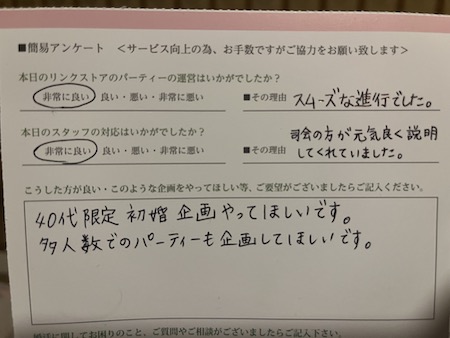 ■簡易アンケート ＜サービス向上の為、お手数ですがご協力をお願い致します＞
本日のリンクストアのパーティーの運営はいかがでしたか？
非常に良い・良い・悪い・非常に悪い ■その理由 スムーズな進行でした。
本日のスタッフの対応はいかがでしたか？
非常に良い・良い・悪い・非常に悪い ■その理由 司会の方が元気良く説明
してくれていました。
こうした方が良い・このような企画をやってほしい等、ご要望がございましたらご記入ください。
40代限定 初婚 企画やってほしいです。
多人数でのパーティーも企画してほしいです。
婚活に関してお困りのこと、ご質問やご相談がございましたらご記入下さい。